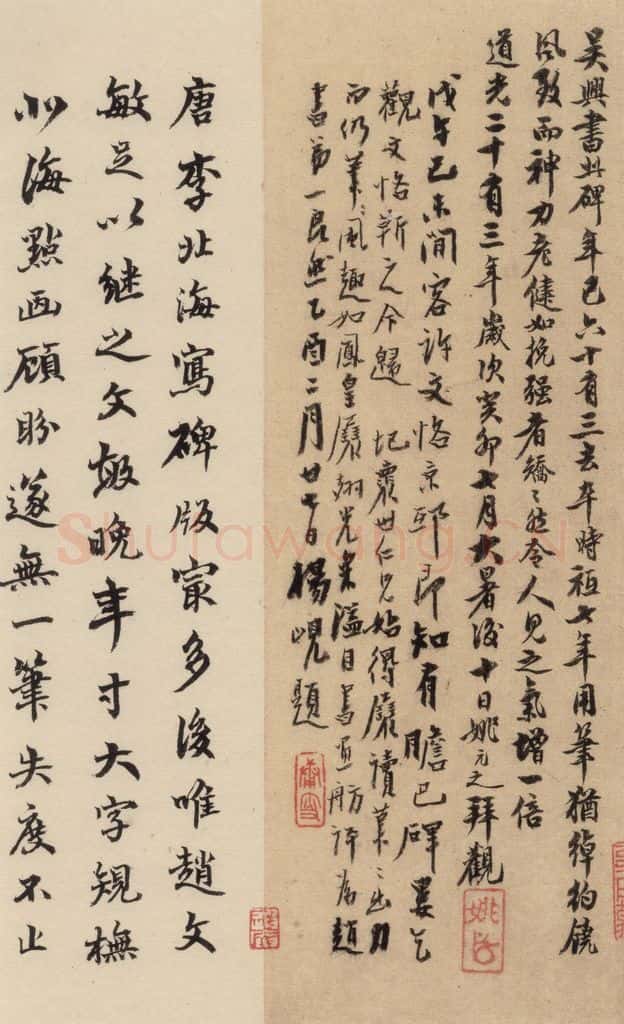 吳興書此碑年已六十有三去卒時祗七年用筆猶綽約饒
風致而神力老健如挽强者矯〻然令人見之氣增一倍
道光二十有三年歲次癸卯七月大暑後十日姚元之拜觀
戊午己未間客許文恪京邸即知有膽巴碑婁乞
觀文恪靳之今歸 世仁兄始得展讀筆〻出力
而仍筆〻風趣如鳳皇展翅光采溢目舫評為趙
書弟一良然乙酉二月廿七日楊峴題
唐李北海寫碑版㝡多後唯趙文
敏足以繼之文敏晚年寸大字規橅
北海點画顧盼遂無一筆失度不止
Shufawang.CN